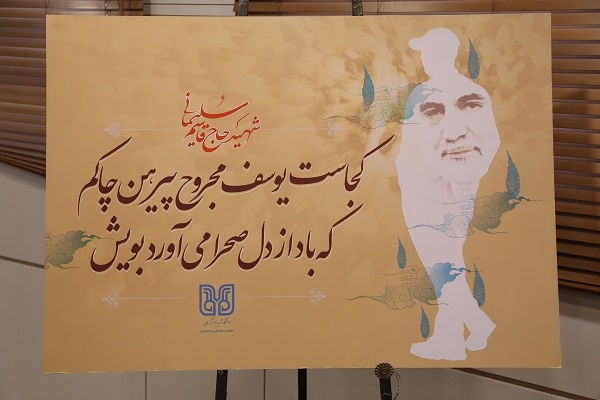 شهید حاج قاسم سلیمانی
کجاست یوسف مجروح پیرهن چاکم
که باد از دل صحرا می آورد بویش